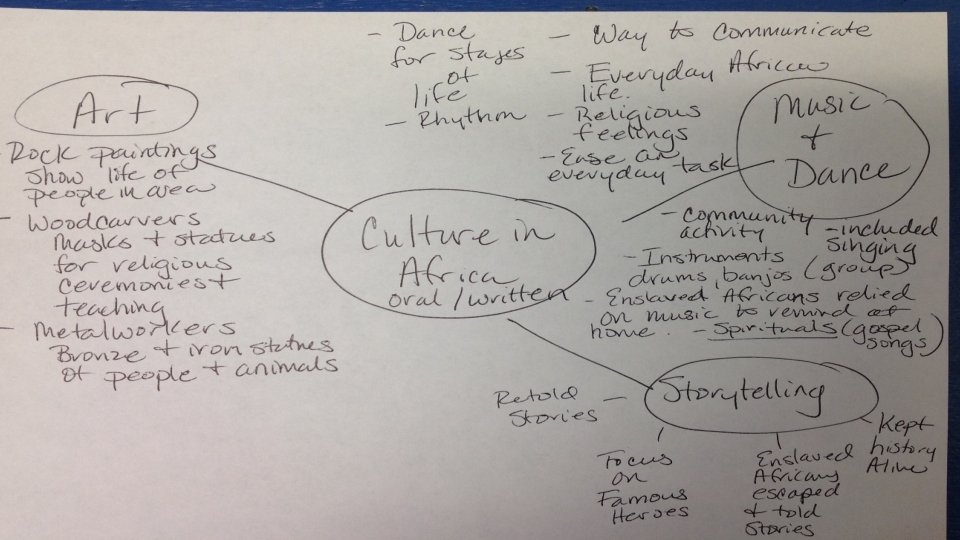 Art
- Rock paintings
show life of
people in area
- Woodcarvers
masks + statues
for religious
ceremonies +
teaching
- Metalworkers
Bronze + iron statues
of people + animals
Culture in
Africa
oral/written
- Dance
for stages
of
life
- Rhythm
- Way to communicate
- Everyday African
life.
- Religious
feelings
- Ease an
everyday task
Music
+
Dance
- community
activity
- included
singing
(group)
- Instruments
drums, banjos
- Enslaved Africans relied
on music to remind of
home.
- Spirituals (gospel
songs)
Storytelling
Retold —
Stories
Focus
on
Famous
Heroes
Enslaved
Africans
escaped
+ told
stories
Kept
history
Alive